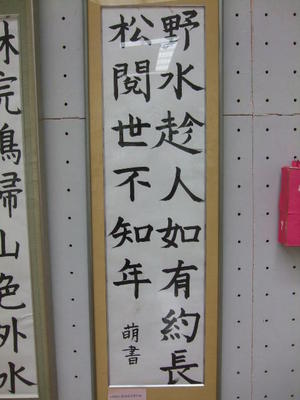 野水趁人如有約長
松閱世不知年
萌書
林宛鳥歸山色外水